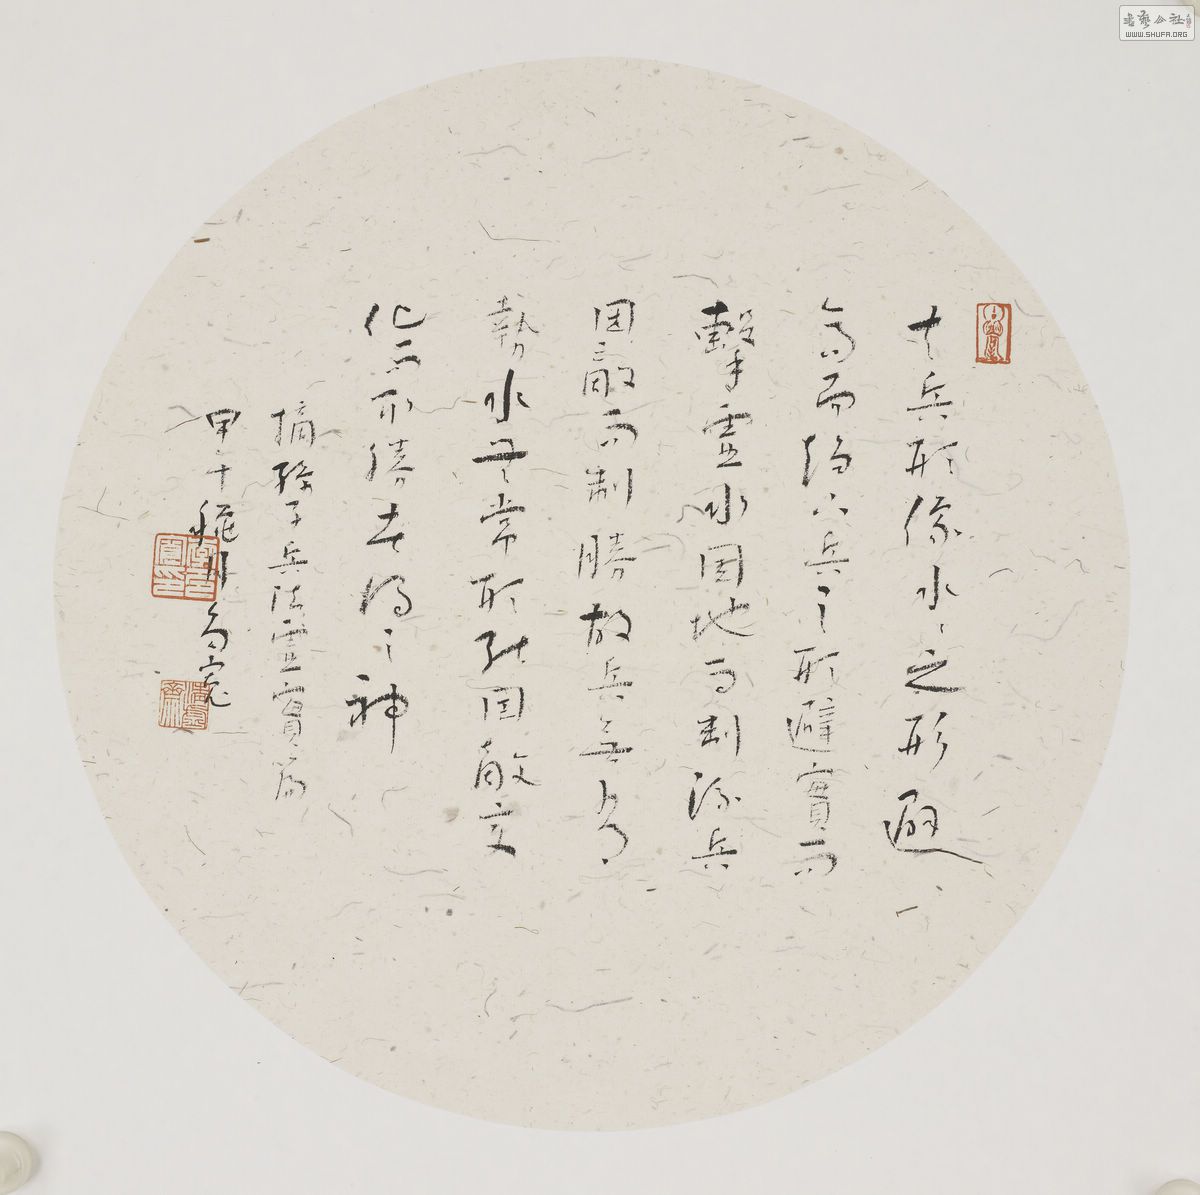 書藝公社
WWW.SHUFA.ORG
夫兵形像水々之形避
高而趨下兵之形避實而
擊虛水因地而制流兵
因敵而制勝故兵無常
勢水無常形能因敵变
化而取勝者謂之神
摘孫子兵法虛實篇
甲午秋月